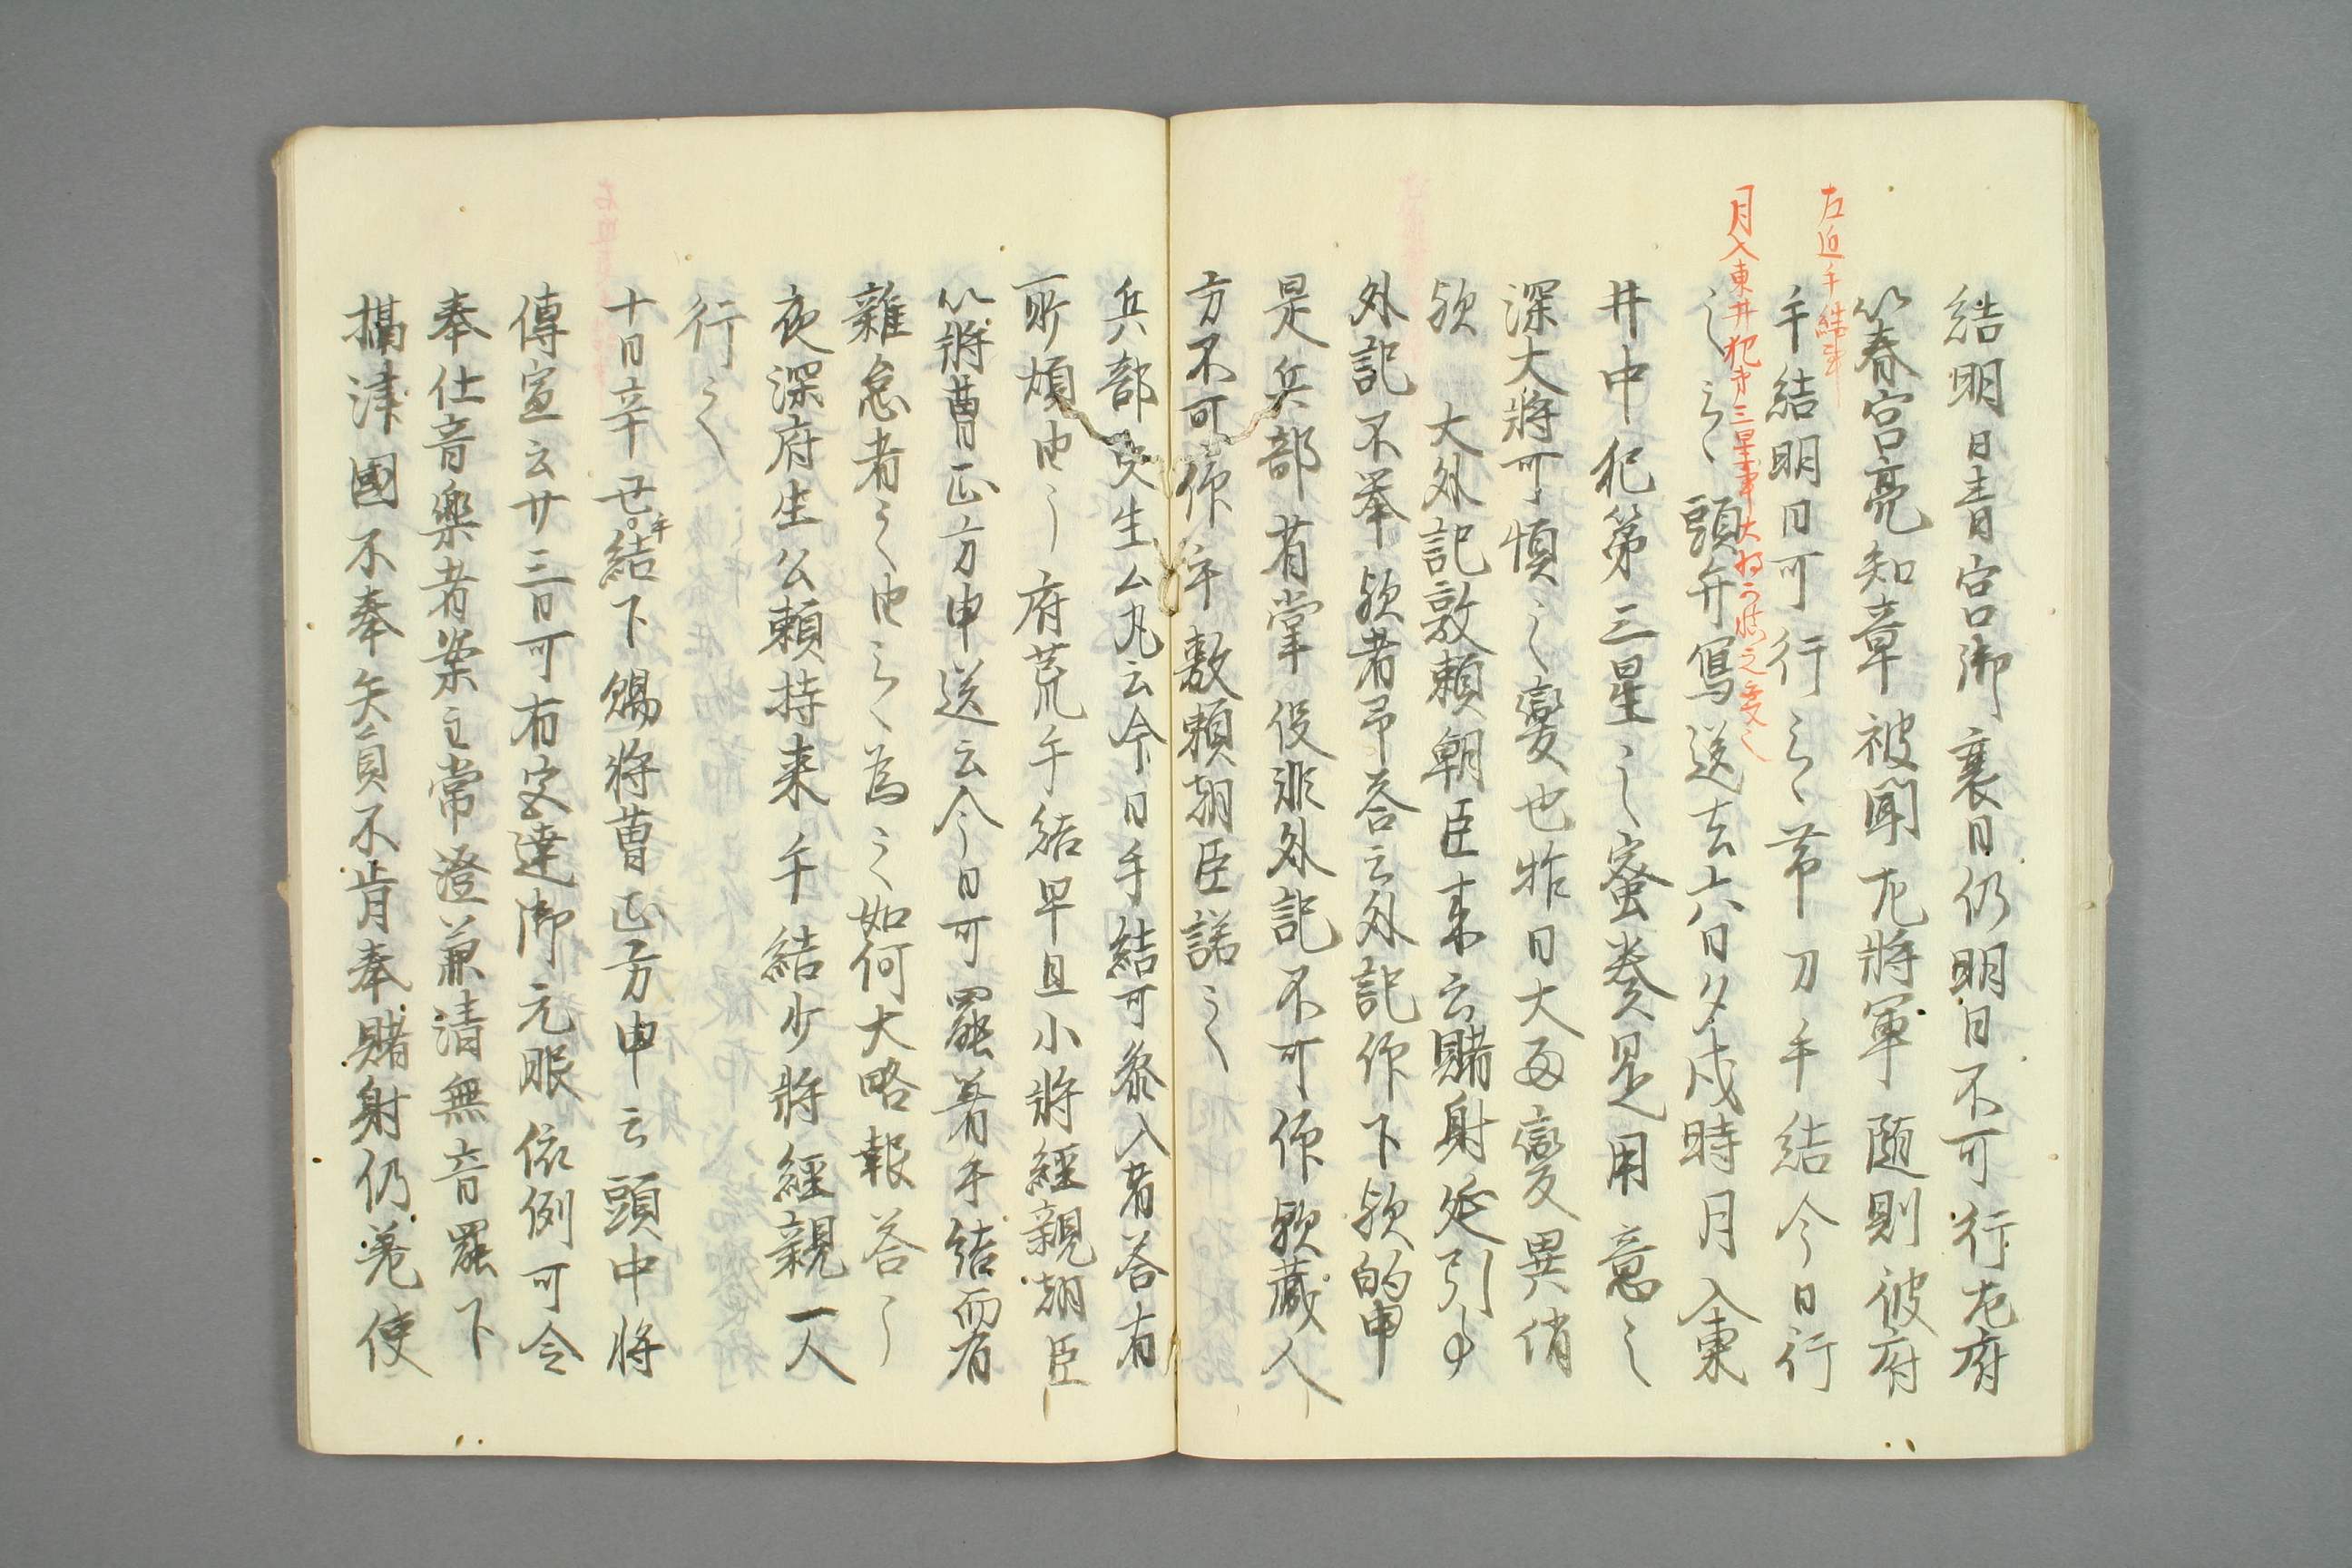 結明日青宮御衰日仍明日不可行左府
以春宮亮知章被聞左將軍随則彼府
左近手結事
手結明日可行云々帯刀手結今日行
月入東井犯第三星事大将可慎之変々
之云々頭弁寫送去六日夕戌時月入東
井中犯第三星之々密奏足用意之
深大將可慎之々變也昨日大雨變異消
歟　大外記敦頼朝臣来云賭射延引事
外記不挙歟者弟答云外記作下歟的申
是兵部省掌役非外記不可作歟蔵人
方不可作乎敷頼朝臣諾々
兵部史生ム丸云今日手結可参入者答有
所煩由了府荒手結早旦小將經親朝臣
以將曹正方申送云今日可罷着手結而有
雜怠者云々由云々為之々如何大略報答了
夜深府生公頼持来手結少將經親一人
行之々
十日辛丑手結下賜将曹正方申云頭中将
傳宣云廿三日可有定達御元服依例可令
奉仕音樂者案主常澄兼清無音罷下
攝津國不奉矢員不肯奉賭射仍差使